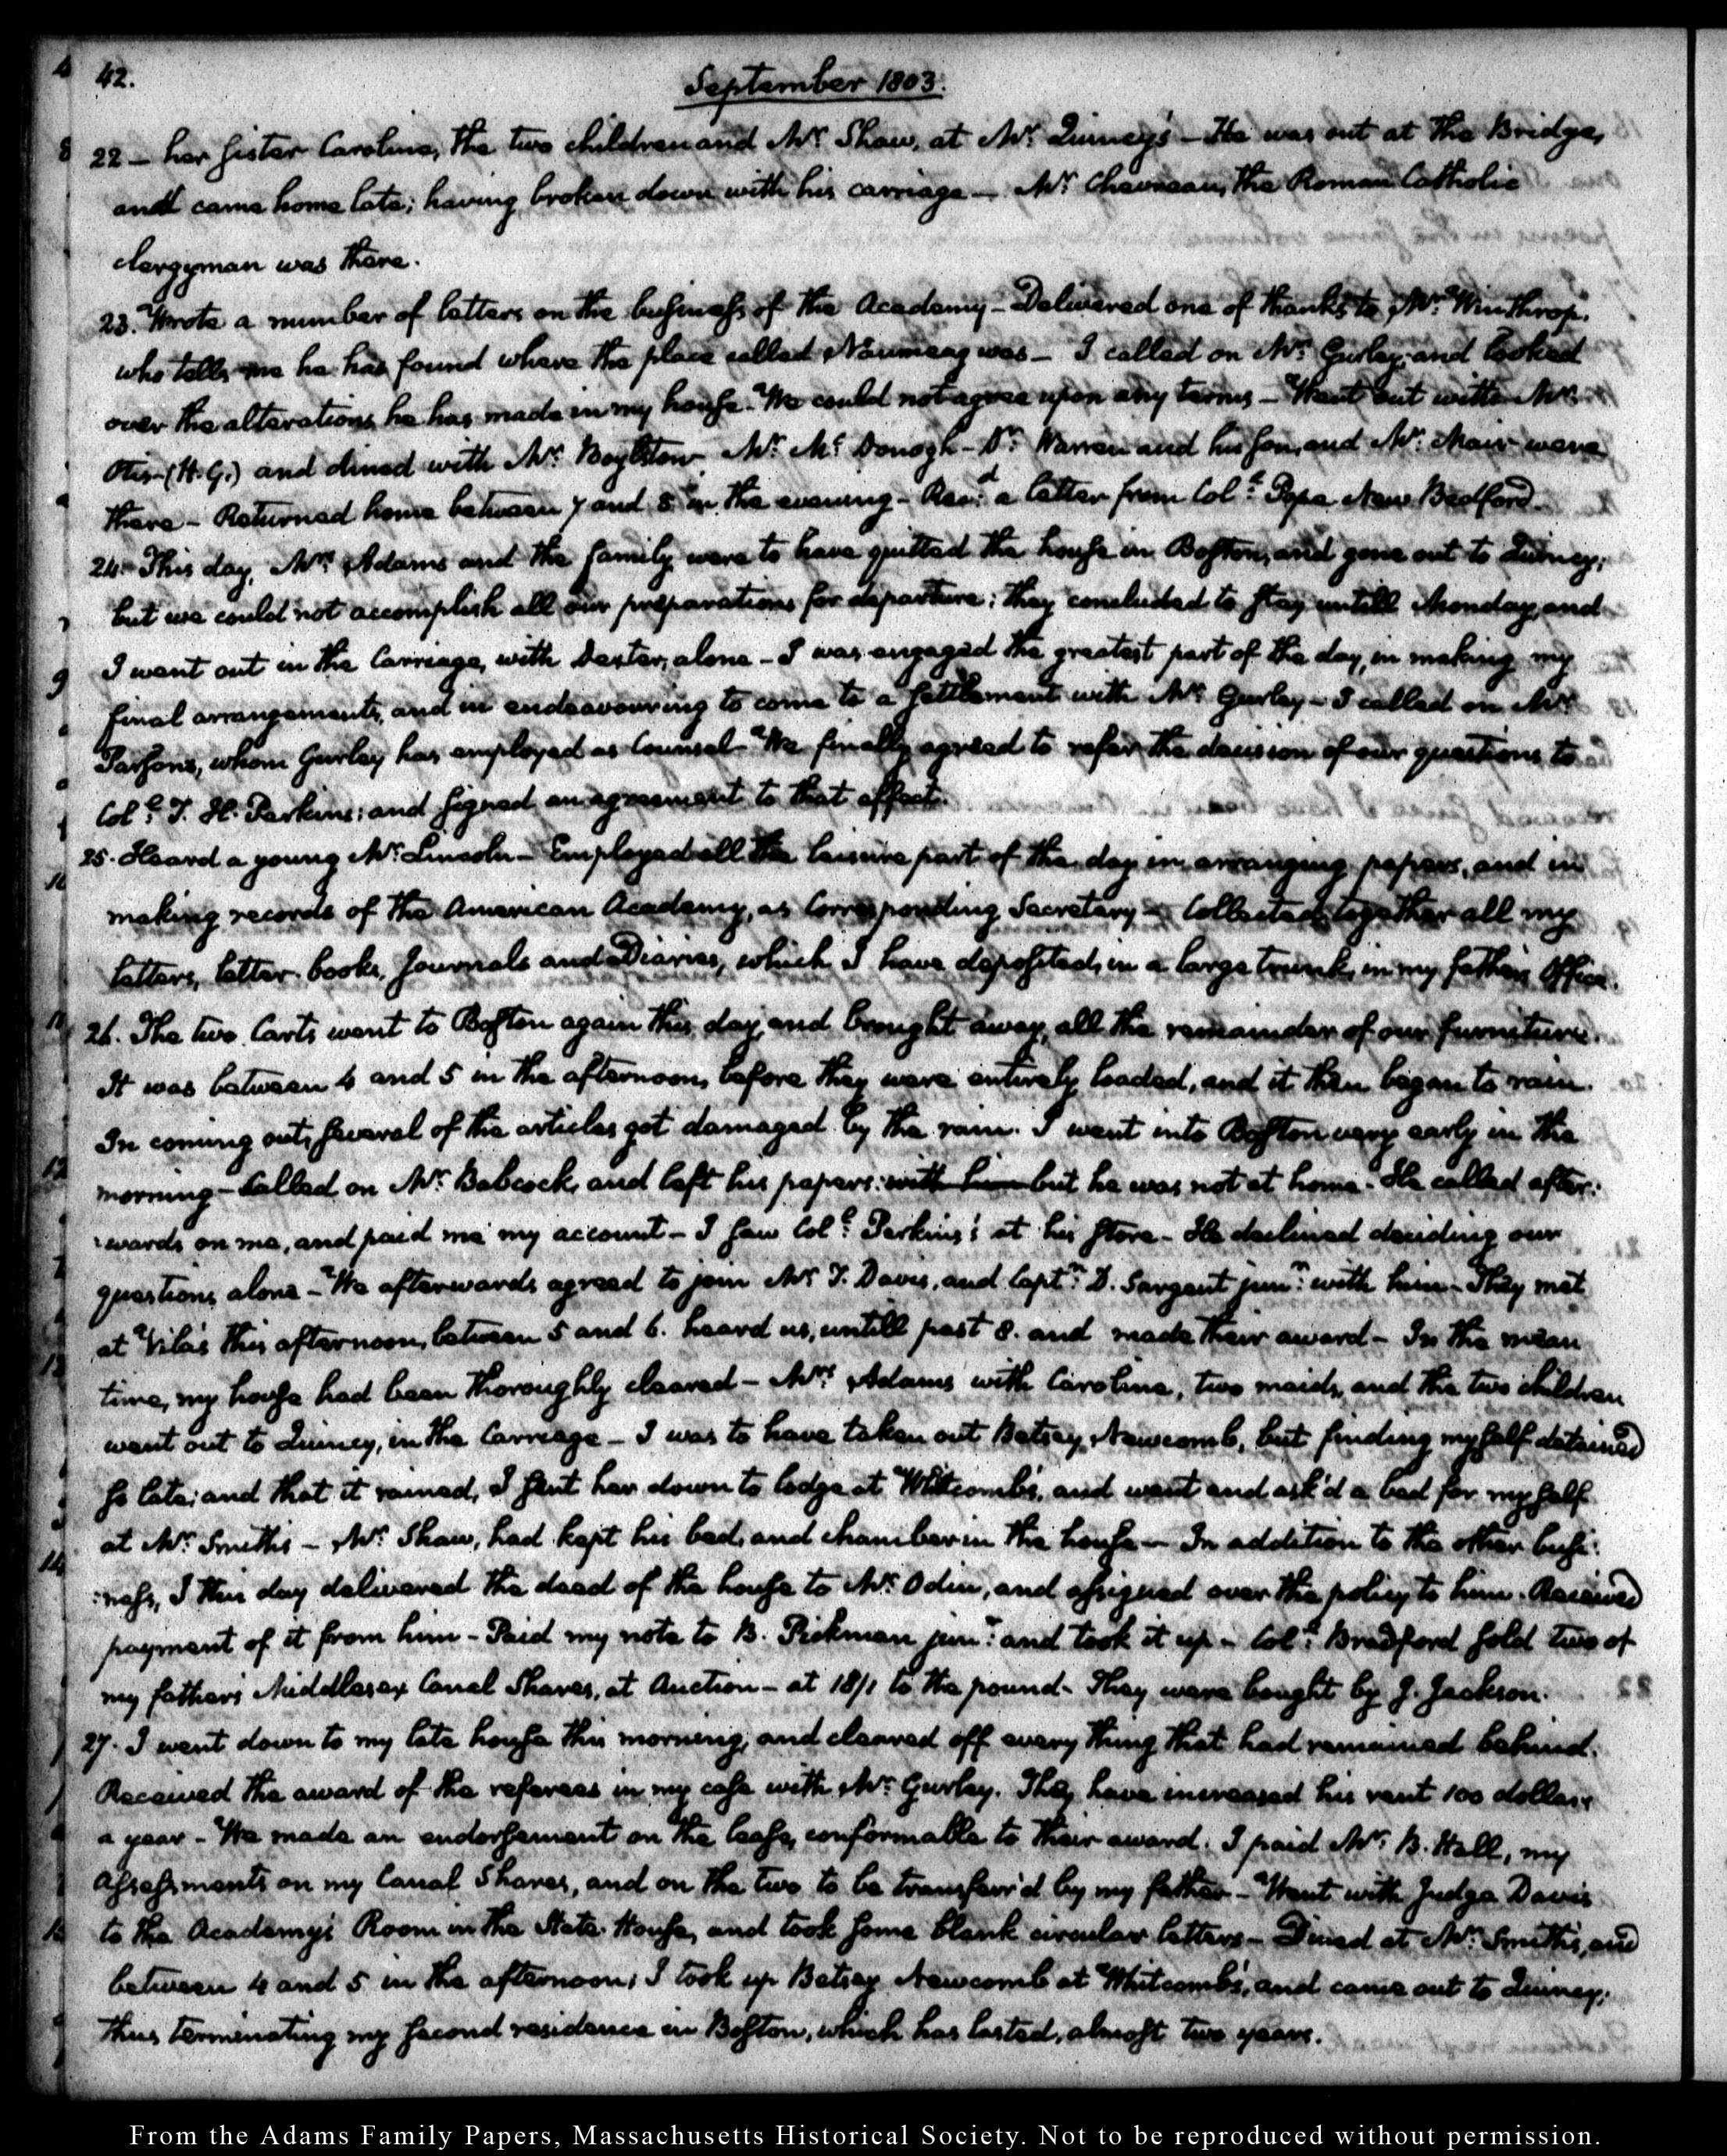 42.
September 1803.
22 – her sister Caroline, the two children and Mr. Shaw, at Mr. Quincy's – He was out at the Bridge,
and came home late; having broken down with his carriage – Mr. the Roman Catholic
clergyman was there.
23. Wrote a number of letters on the business of the Academy – Delivered one of thanks to Mr. Winthrop,
who tells me he has found where the place called Naumeag was – I called on Mr. Gurley, and looked
over the alterations he has made in my house. We could not agree upon any terms – Went out with Mr.
Otis (H. G.) and dined with Mr. Boylston. Mr. McDonogh – Dr. Warren and his son, and Mr. were
there – Returned home between 7 and 8 in the evening – Recd. a letter from Coll. Pope New Bedford.
24. This day, Mrs. Adams and the family were to have quitted the house in Boston, and gone out to Quincy;
but we could not accomplish all our preparations for departure; they concluded to stay untill Monday, and
I went out in the Carriage, with Dexter, alone – I was engaged the greatest part of the day, in making my
final arrangements, and in endeavouring to come to a settlement with Mr. Gurley – I called on Mr.
Parsons, whom Gurley has employed as Counsel – We finally agreed to refer the decision of our questions to
Coll. T. H. Perkins; and signed an agreement to that effect.
25. Heard a young Mr. Lincoln – Employed all the leisure part of the day in arranging papers, and in
making records of the American Academy, as Corresponding Secretary – Collected together all my
letters, letter-books, Journals and Diaries, which I have deposited, in a large trunk, in my father's Office.
26. The two Carts went to Boston again this day, and brought away, all the remainder of our furniture.
It was between 4 and 5 in the afternoon, before they were entirely loaded, and it then began to rain.
In coming out, several of the articles got damaged by the rain. I went into Boston very early in the
morning – Called on Mr. Babcock, and left his papers: with him but he was not at home. He called after:
:wards on me, and paid me my account – I saw Coll. Perkins; at his store – He declined deciding our
questions alone – We afterwards agreed to join Mr. T. Davis, and Captn. D. Sargent junr. with him – They met
at Vila's this afternoon, between 5 and 6. heard us, untill past 8. and made their award – In the mean
time, my house had been thoroughly cleared – Mrs. Adams with Caroline, two maids, and the two children
went out to Quincy, in the Carriage – I was to have taken out Betsey Newcomb, but finding myself detained
so late; and that it rained, I sent her down to lodge at Whitcomb's, and went and ask'd a bed for myself
at Mr. Smith's – Mr. Shaw, had kept his bed, and chamber in the house – In addition to the other busi:
:ness, I this day delivered the deed of the house to Mr. Odin, and assigned over the policy to him. Received
payment of it from him – Paid my note to B. Pickman junr: and took it up – Coll. Bradford sold two of
my father's Middlesex Canal Shares, at Auction – at 18/1 to the pound – They were bought by J. Jackson.
27. I went down to my late house this morning, and cleared off every thing that had remained behind.
Received the award of the referees in my case with Mr. Gurley. They have increased his rent 100 dollars
a year – We made an endorsement on the lease, conformable to their award. I paid Mr. B. Hall, my
assessments on my Canal Shares, and on the two to be transferr'd by my father – Went with Judge Davis
to the Academy's Room in the State-House, and took some blank circular letters – Dined at Mr. Smith's, and
between 4 and 5 in the afternoon, I took up Betsey Newcomb at Whitcomb's, and came out to Quincy;
thus terminating my second residence in Boston, which has lasted, almost two years.
From the Adams Family Papers, Massachusetts Historical Society. Not to be reproduced without permission.